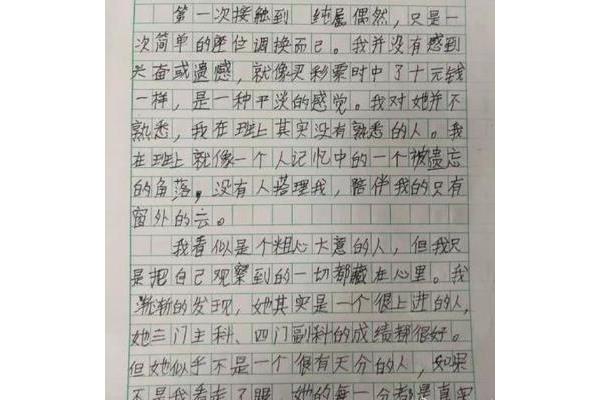 第一次接触到 纯属偶然，只是一
次简单的座位调换而已。我并没有感到
兴奋或遗憾，就像买彩票时中了十元钱
一样，是一种平淡的感觉。我对她并不
熟悉，我在班上其实没有熟悉的人。我
在班上就像一个人记忆中的一个被遗忘
的角落，没有人搭理我，陪伴我的只有
窗外的云。
我看似是个粗心大意的人，但我只
是把自己观察到的一切都藏在心里。我
渐渐的发现，她其实是一个很上进的人，
她三门主科、四门副科的成绩都很好。
但她似乎不是一个很有天分的人，如果
不是我看走了眼，她的每一分都是真实